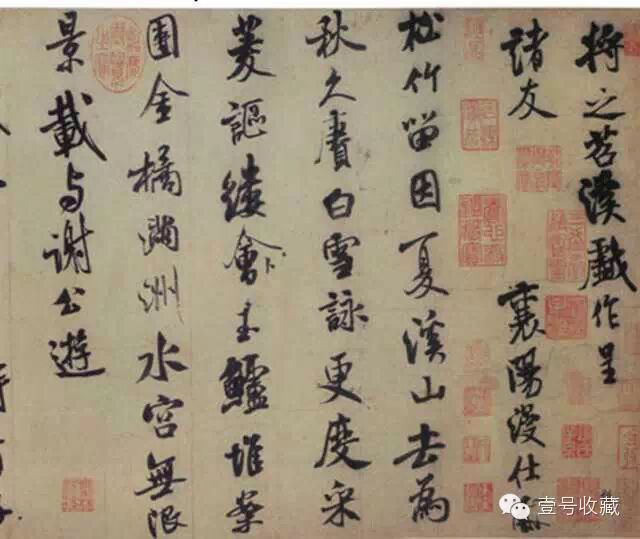 将之苕溪戲作呈
諸友
襄陽漫仕黻
松竹留因夏溪山去為
秋久賡白雪詠更度采
菱謳縷會玉鱸堆案
團金橘滿洲水宮無限
景載与謝公遊
壹号收藏